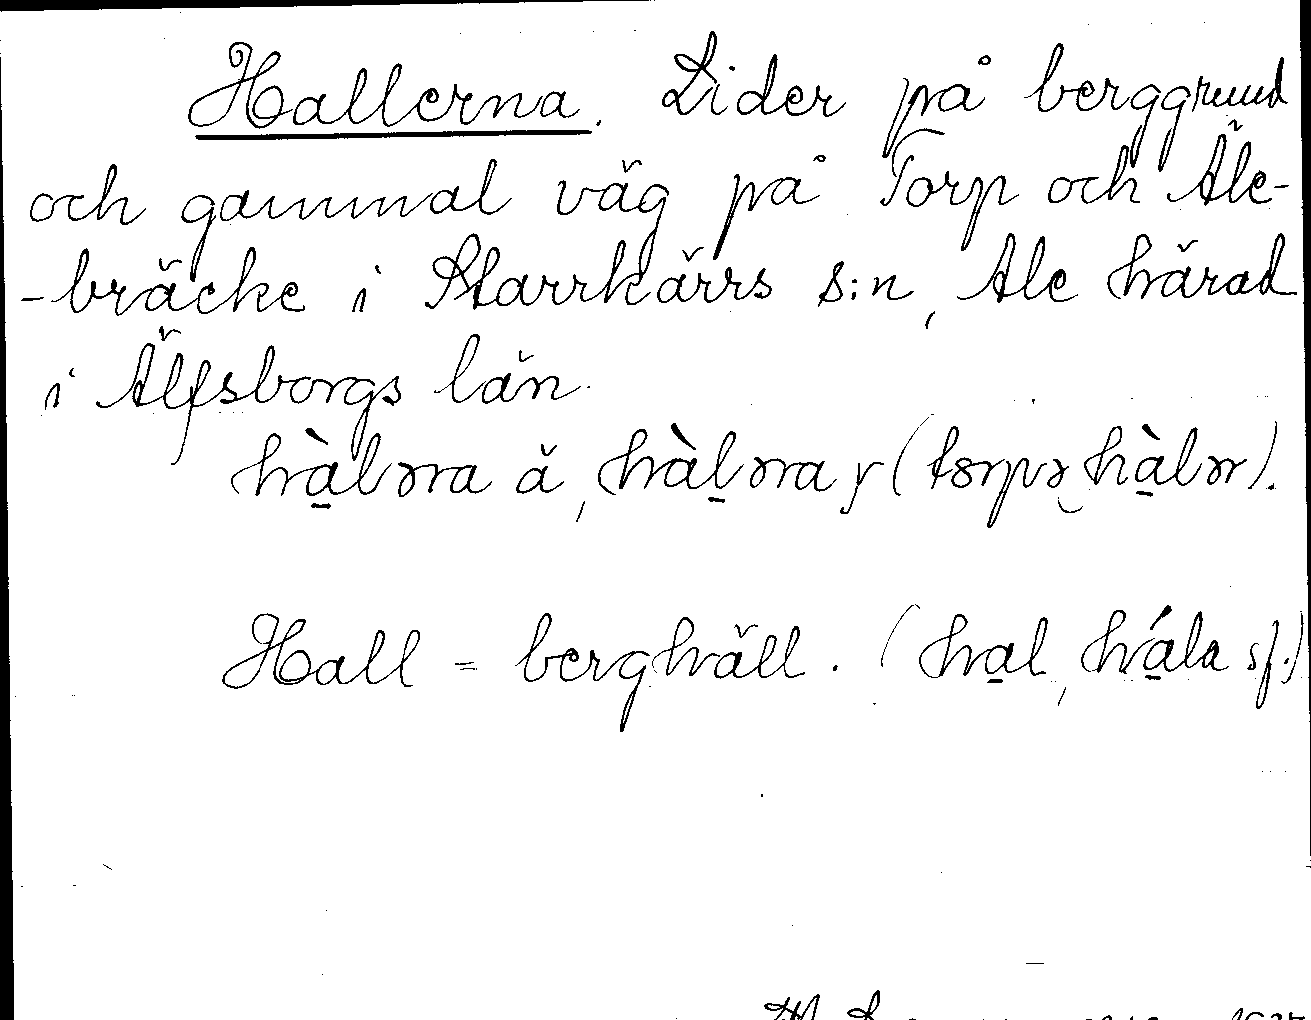 Hallerna. Lider på berggrund
och gammal väg på Torp och Äle-
-bräcke i Starrkärrs s:n, Ale härad
i Älfsborgs län.
hàlərna ä, hàlərna y (tɔrpə hàlər).
Hall = berghäll. (hal, hála sf.)